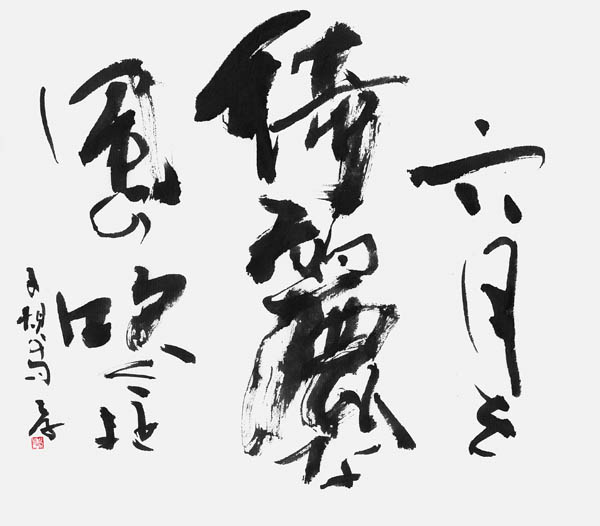 六月を
綺麗な
風の吹くことよ
子規の句